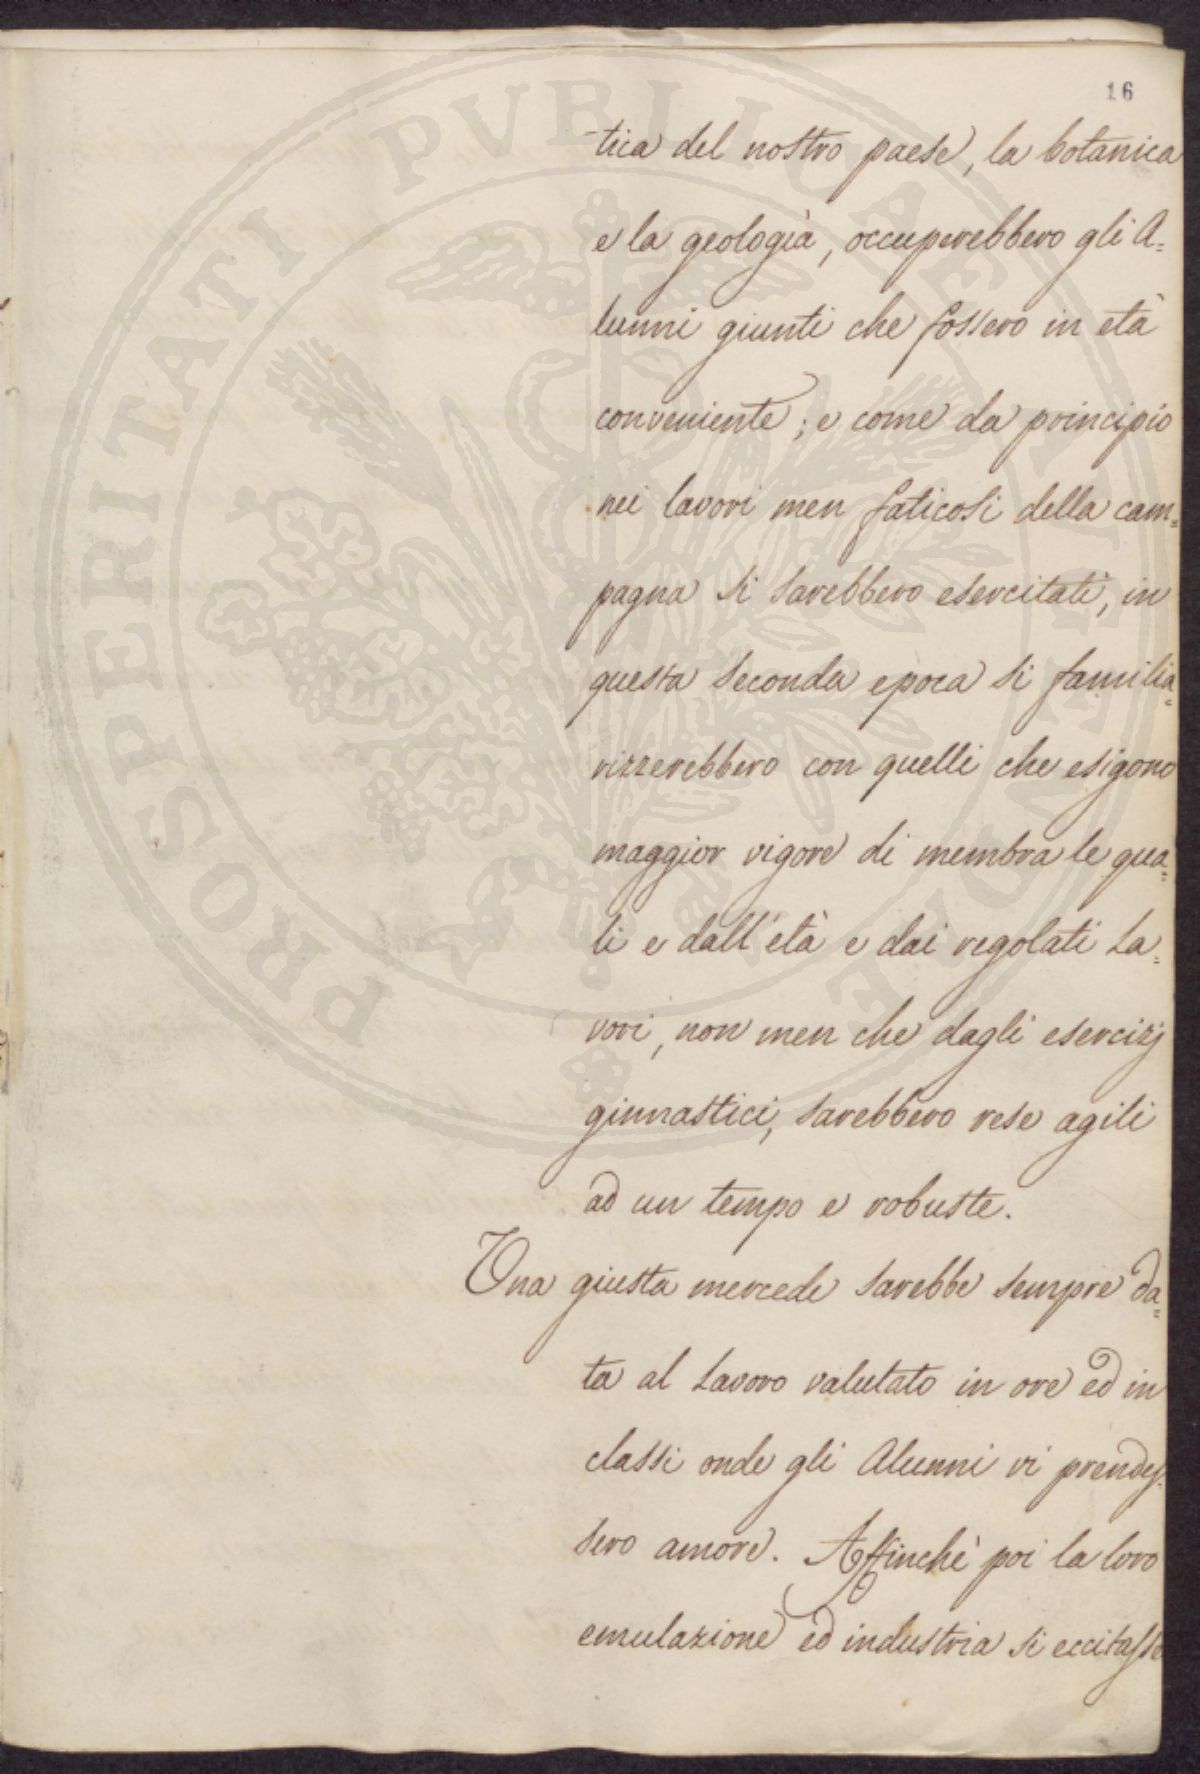 16
tica del nostro paese, la botanica
e la geologià, occuperebbero gli A=
lunni giunti che fossero in età
conveniente; e come da principio
nei lavori men faticosi della cam=
pagna si sarebbero esercitati, in
questa seconda epoca si familia=
rizzerebbero con quelli che esigono
maggior vigore di membra le qua=
li e dall'età e dai regolati la=
vori, non men che dagli esercizj
ginnastici, sarebbero rese agili
ad un tempo e robuste.
Una giusta mercede sarebbe sempre da=
ta al lavoro valutato in ore ed in
classi onde gli Alunni vi prendes=
sero amore. Affinchè poi la loro
emulazione ed industria si eccitasse
PROSPERITATI PVBLICAE AVGENDAE